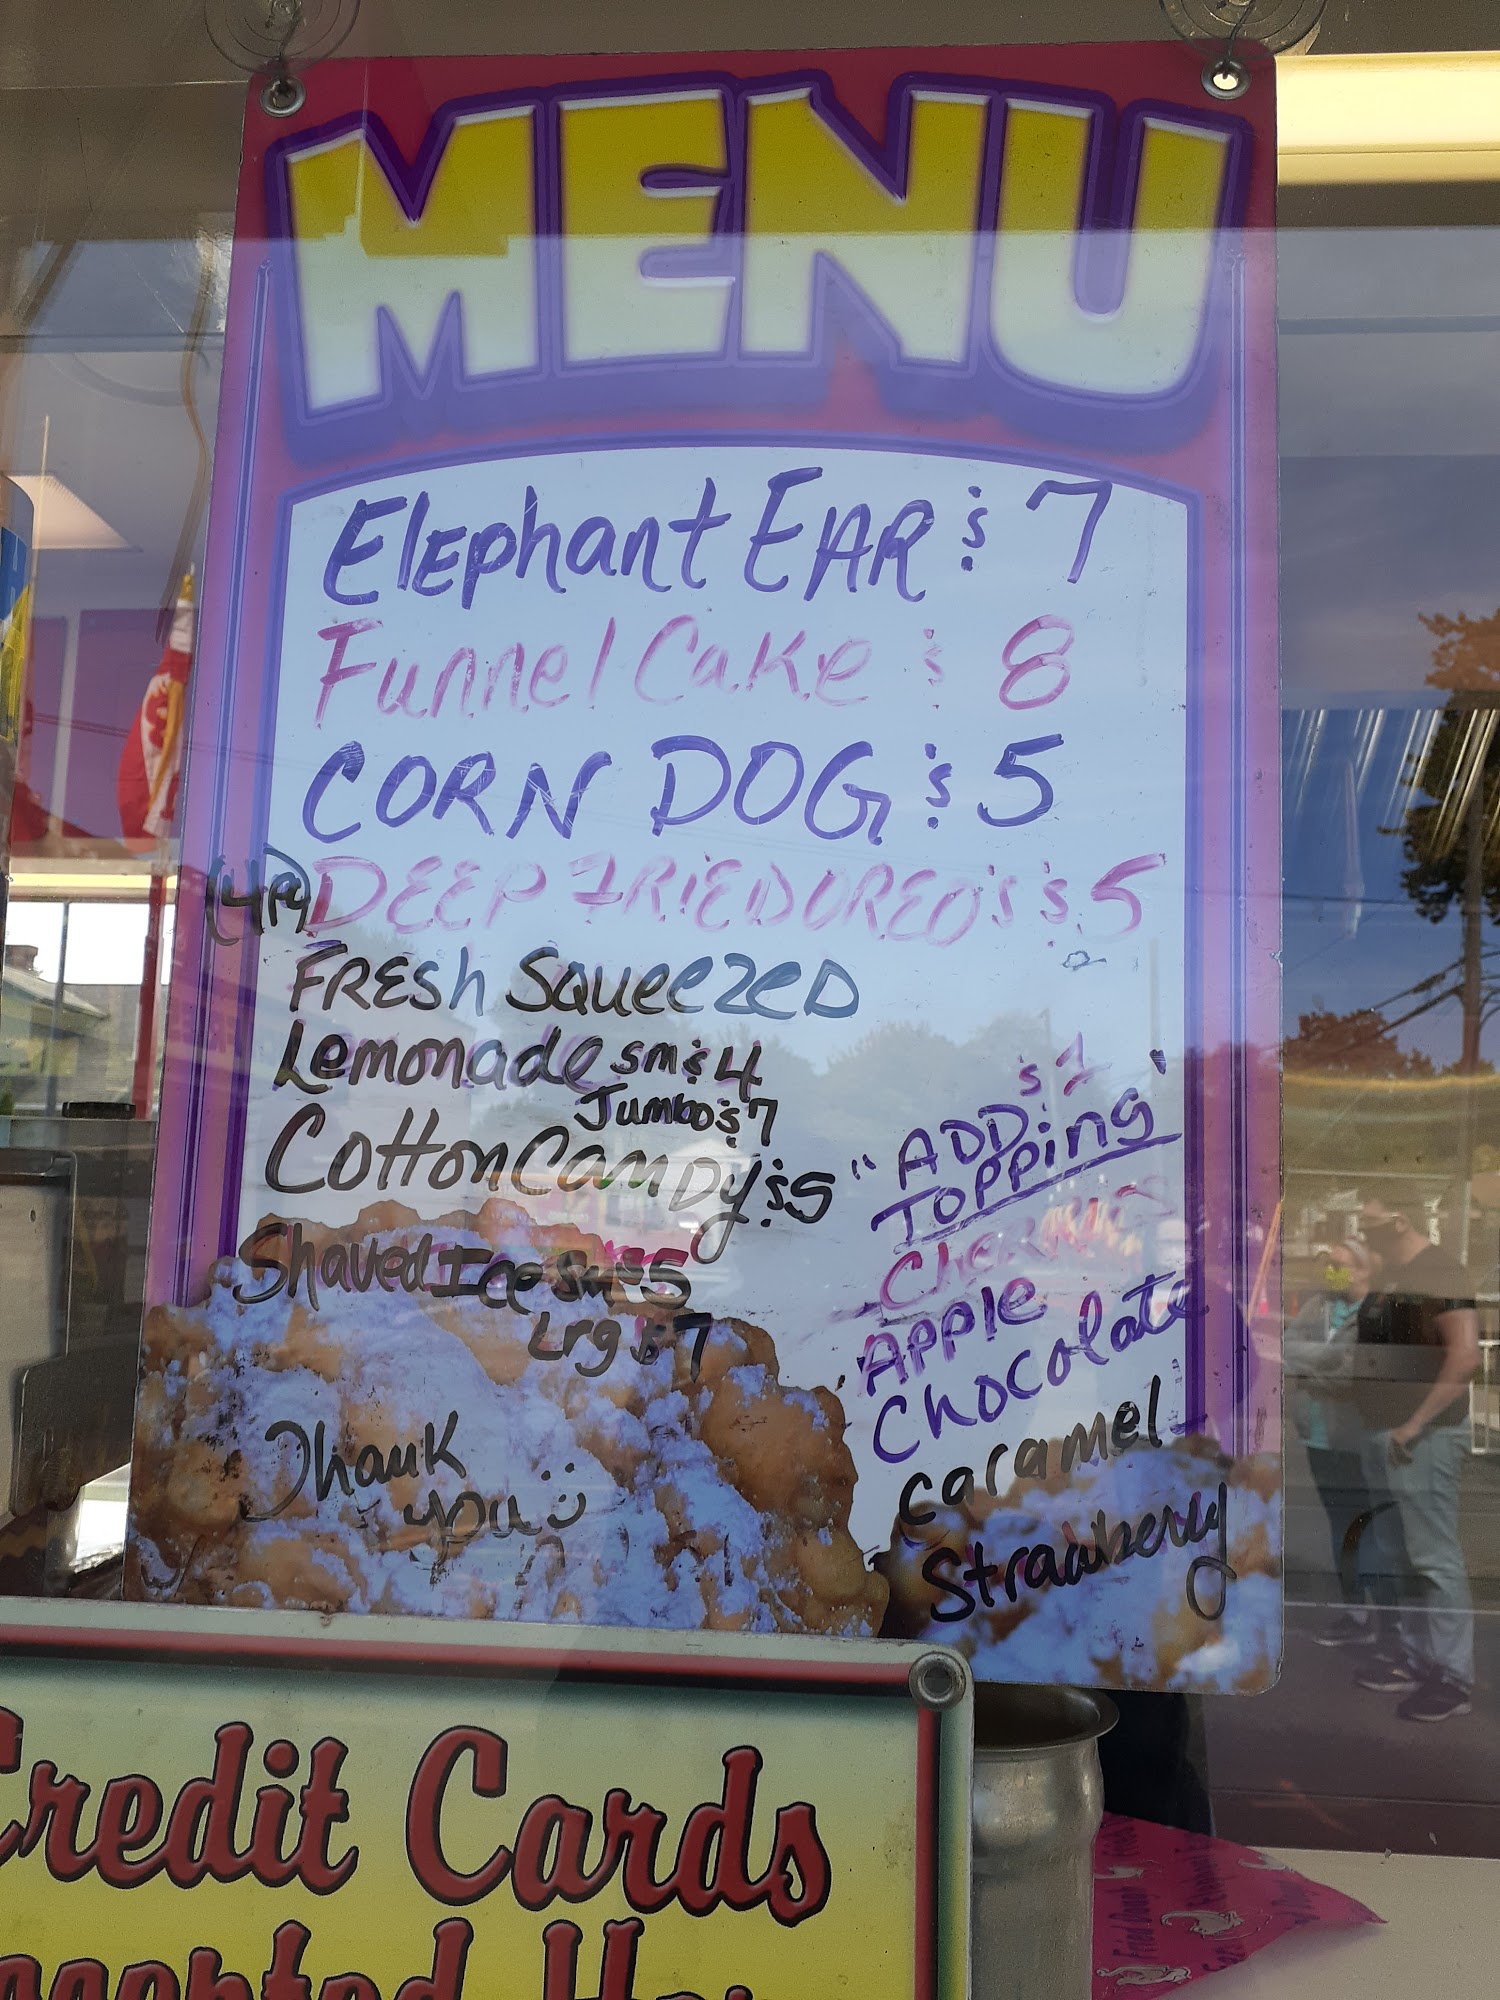 MENU
Elephant EAR $ 7
Funnel Cake $ 8
CORN DOG $ 5
DEEP FRIED OREO'S $ 5
FRESh SQueezeD
Lemonade sm $ 4
Jumbo $ 7
Cotton CanDy $ 5
Shaved Ice Sm $ 5
Lrg $ 7
Thank
you
$ 1
"ADD
TOPPing"
CheRRies
APPle
Chocolate
caramel
Strawberry
Credit Cards